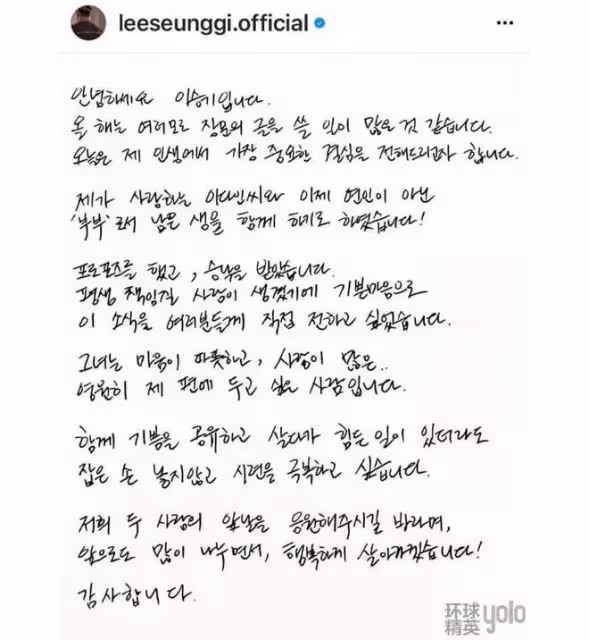 leeseunggi.official
안녕하세요 이승기입니다.
올 해는 여러모로 장문의 글을 쓸 일이 많은 것 같습니다.
오늘은 제 인생에서 가장 중요한 결심을 전해드리고자 합니다.
제가 사랑하는 이다인씨와 이제 연인이 아닌
'부부'로서 남은 생을 함께 하기로 하였습니다!
프로포즈를 했고, 승낙을 받았습니다.
평생 책임질 사람이 생겼기에 기쁜마음으로
이 소식을 여러분들께 직접 전하고 싶었습니다.
그녀는 마음이 따뜻하고, 사랑이 많은..
영원히 제 편에 두고 싶은 사람입니다.
함께 기쁨을 공유하고 살다가 힘든 일이 있더라도
잡은 손 놓지않고 시련을 극복하고 싶습니다.
저희 두 사람의 앞날을 응원해주시길 바라며,
앞으로도 많이 나누면서, 행복하게 살아가겠습니다!
감사합니다.
环球精英 yolo